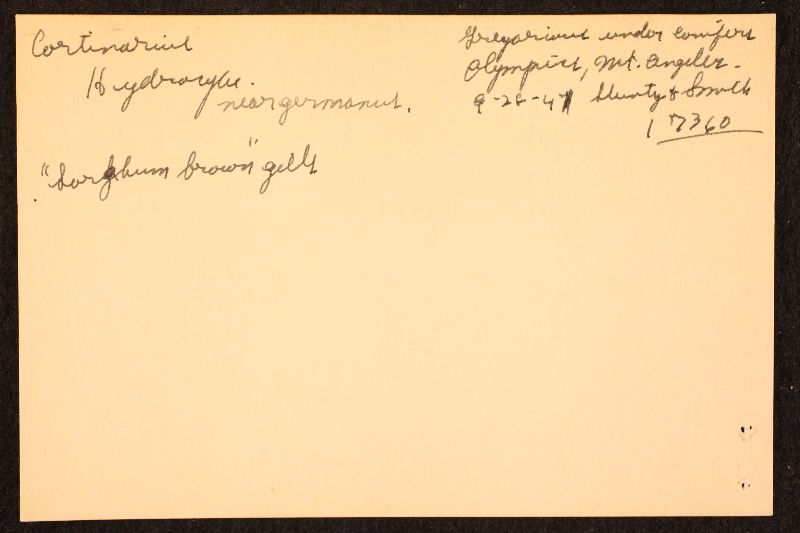 Cortinarius
Hydrocybe.
near germanus.
"Sorghum brown" gills
Gregarious under conifers
Olympics, Mt. Angeles.
9-28-41 Stuntz & Smith
17360